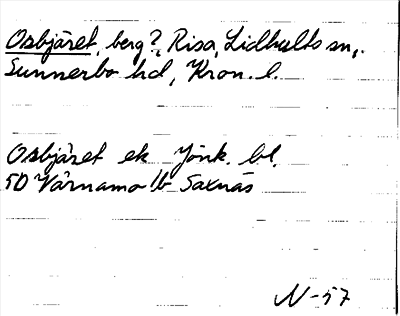 Osbjäret, berg?, Risa, Lidhults sn,
Sunnerbo hd, Kron. l.
Osbjäret ek Jönk. bl.
5D Värnamo 1b Saxnäs
N-57